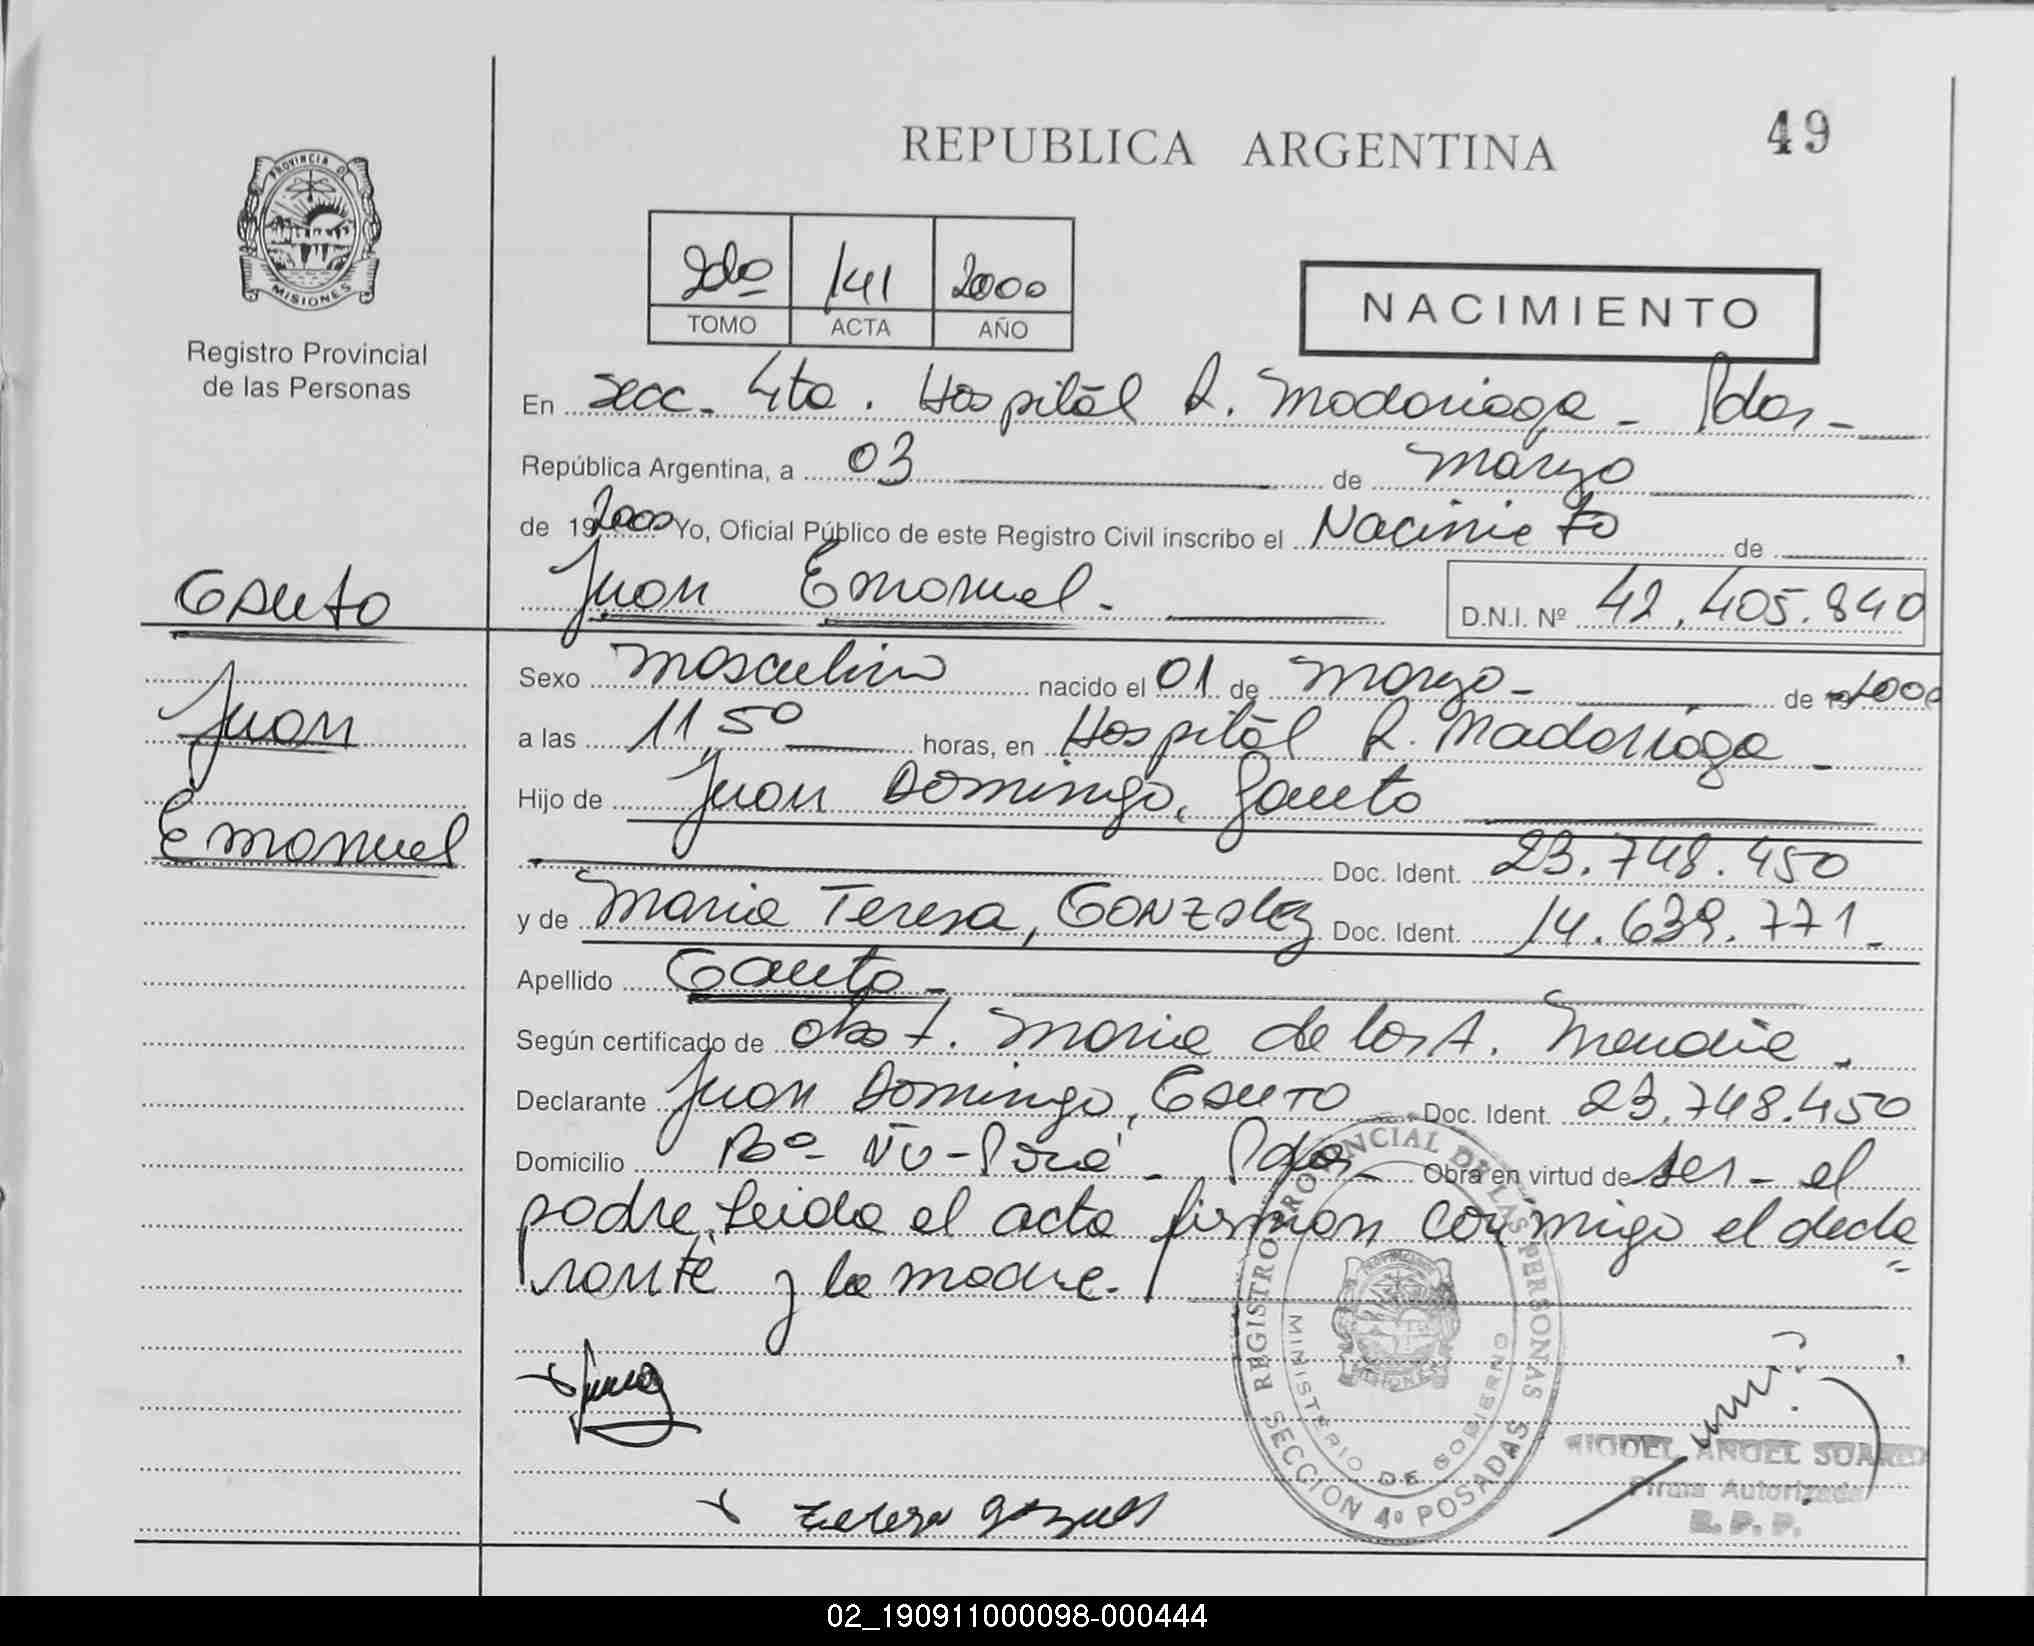 REPUBLICA ARGENTINA
49
PROVINCIA DE
MISIONES
Registro Provincial
de las Personas
2do 141 2000
TOMO ACTA AÑO
NACIMIENTO
En Secc. 4ta. Hospital R. Madariaga - Pdas -
República Argentina, a 03 de marzo
de 192000 Yo, Oficial Público de este Registro Civil inscribo el Nacimieto de
Juan Emanuel.
D.N.I. Nº 42.405.840
Gauto
Juan
Emanuel
Sexo masculino nacido el 01 de marzo - de 2000
a las 11,50 horas, en Hospital R. Madariaga -
Hijo de Juan Domingo, Gauto
Doc. Ident. 23.748.450
y de Maria Teresa, GONZalez Doc. Ident. 14.639.771.-
Apellido Gauto -
Según certificado de obst. Maria de los A.
Declarante Juan Domingo, GAUTO Doc. Ident. 23.748.450
Domicilio Bº - Ñu-Porá - Pdas - Obra en virtud de ser - el
padre, leida el acta firman conmigo el decla
rante y la madre.
REGISTRO PROVINCIAL DE LAS PERSONAS
MINISTERIO DE GOBIERNO
SECCION 4º POSADAS
MIGUEL ANGEL SUAREZ
Firma Autorizada
R. P. P.
02_190911000098-000444